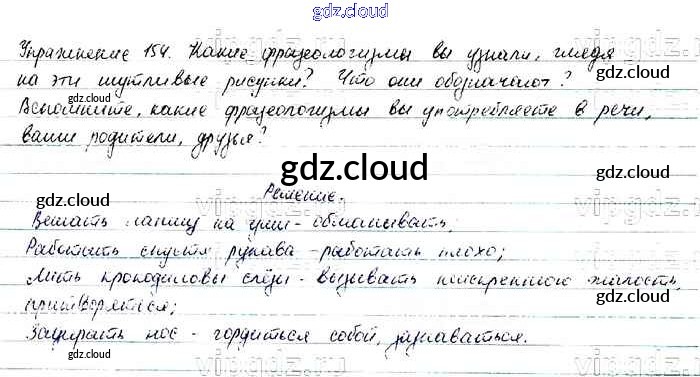 gdz.cloud
Упражнение 154. Какие фразеологизмы вы узнали, глядя
на эти шутливые рисунки? Что они обозначают?
gdz.cloud gdz.cloud
Вспомните, какие фразеологизмы вы употребляете в речи,
ваши родители, друзья?
gdz.cloud
gdz.cloud gdz.cloud
Решение.
Вешать лапшу на уши - обманывать;
Работать спустя рукава - работать плохо;
gdz.cloud
Лить крокодиловы слёзы - вызывать неискреннюю жалость,
притворяться;
gdz.cloud
Задирать нос - гордиться собой, зазнаваться.
gdz.cloud
vipgdz